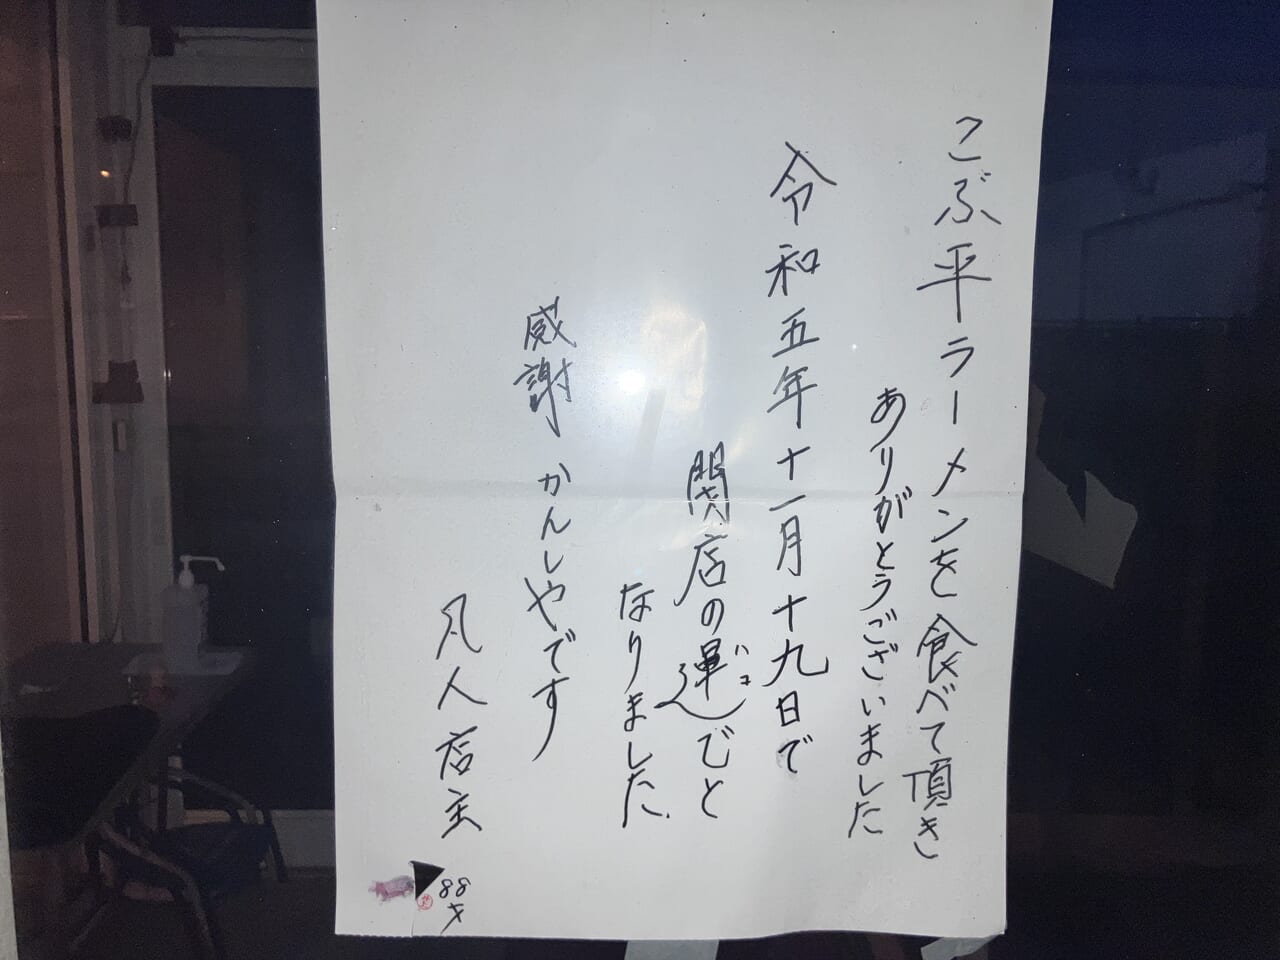 こぶ平ラーメンを食べて頂き
ありがとうございました
令和五年十一月十九日で
閉店の運びと
なりました
感謝かんしやです
凡人店主
88才